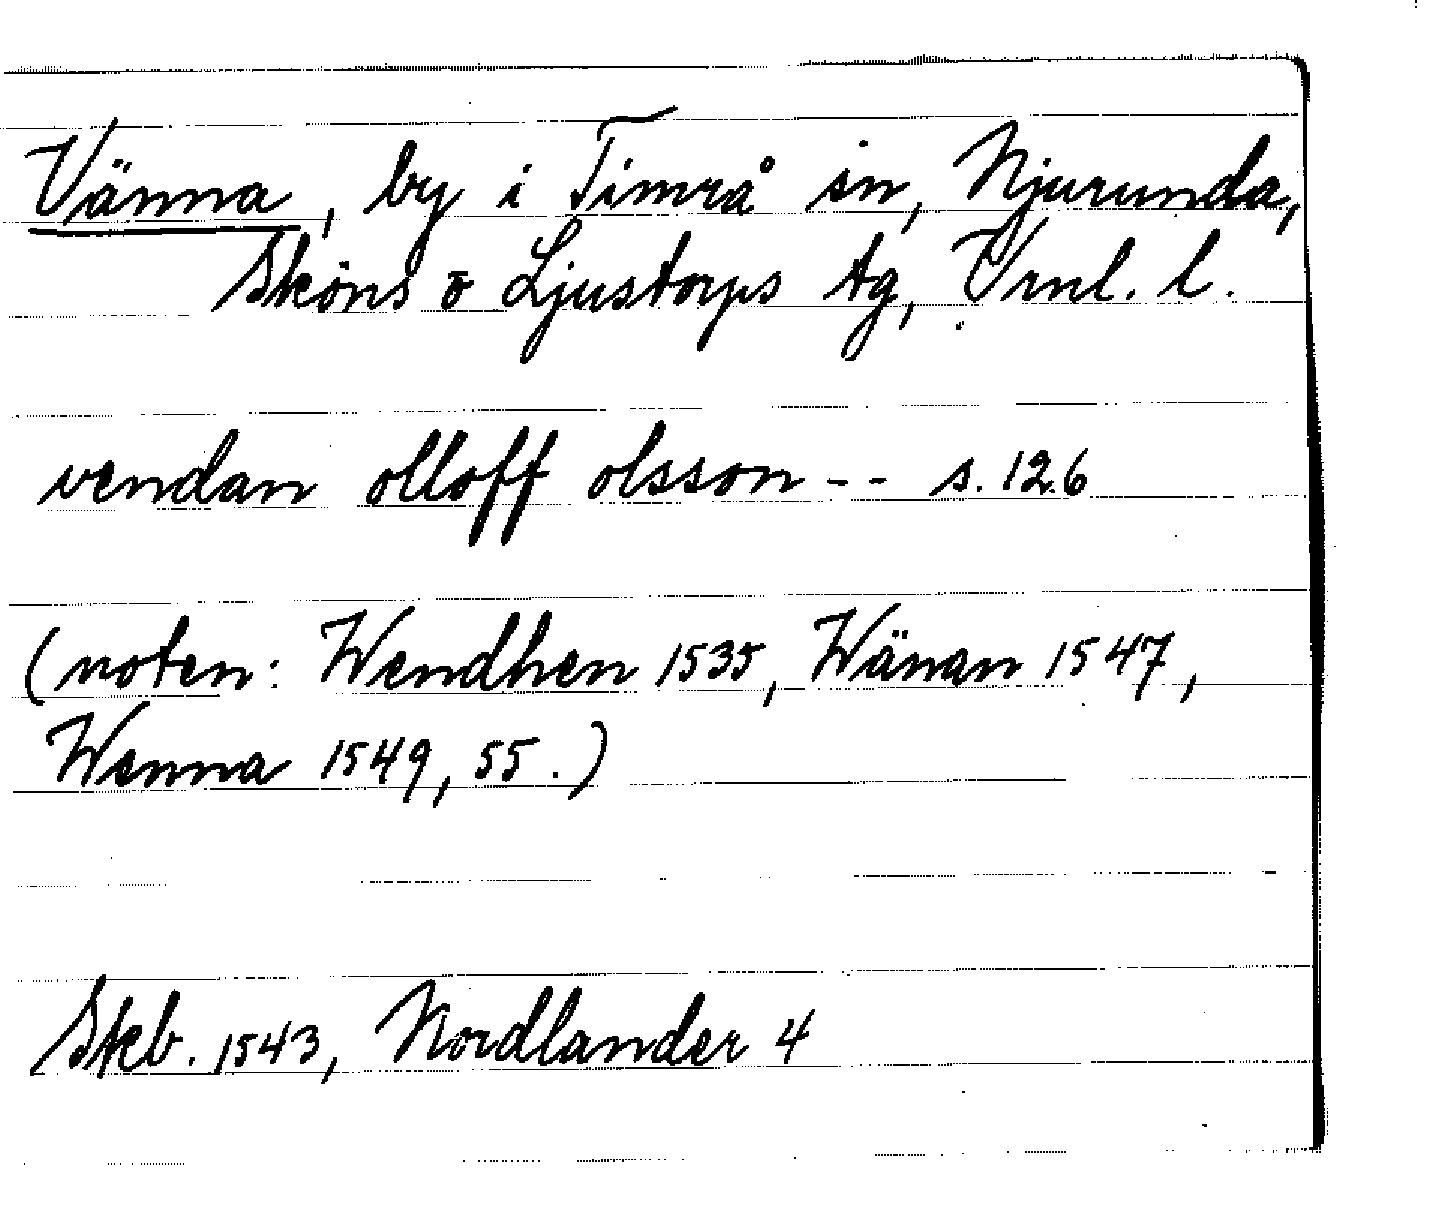 Vänna, by i Timrå sn, Njurunda,
Sköns o Ljustorps tg, Vrnl. l.
vendan olloff olsson -- s. 126
(noten: Wendhen 1535, Wänan 1547,
Wenna 1549, 55.)
Skb. 1543, Nordlander 4